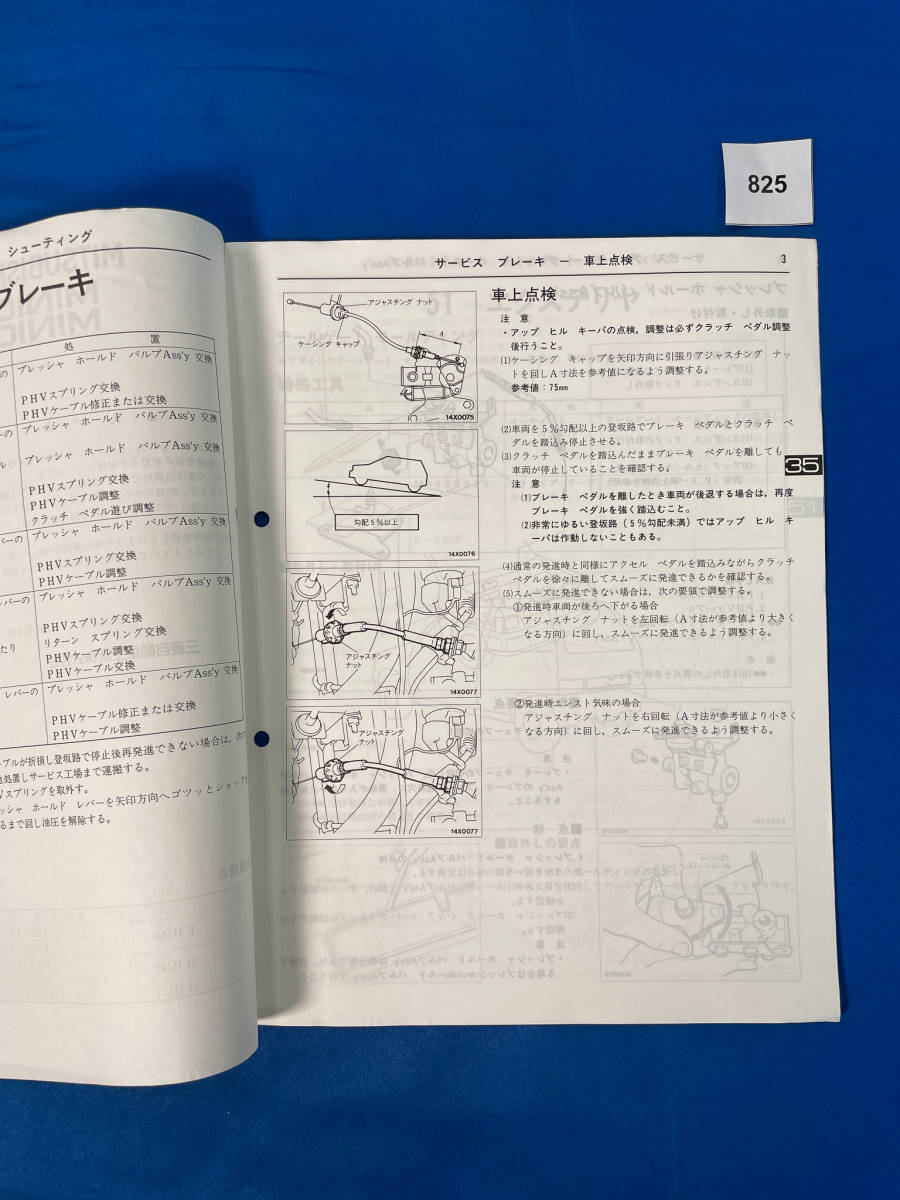 825
シューティング
ブレーキ
処 置
プレッシャ ホールド バルブAss'y 交換
PHVスプリング交換
PHVケーブル修正または交換
プレッシャ ホールド バルブAss'y 交換
プレッシャ ホールド バルブAss'y 交換
PHVスプリング交換
PHVケーブル調整
クラッチ ペダル遊び調整
プレッシャ ホールド バルブAss'y 交換
PHVスプリング交換
PHVケーブル調整
プレッシャ ホールド バルブAss'y 交換
PHVスプリング交換
リターン スプリング交換
PHVケーブル調整
PHVケーブル交換
プレッシャ ホールド バルブAss'y 交換
PHVケーブル修正または交換
PHVケーブル調整
ーブルが折損し登坂路で停止後再発進できない場合は，次の
処置しサービス工場まで運搬する。
Vスプリングを取外す。
ッシャ ホールド レバーを矢印方向へゴツッとショック
るまで回し油圧を解除する。
サービス ブレーキ － 車上点検
3
アジャスチング ナット
ケーシング キャップ
A
14X0075
勾配5％以上
14X0076
アジャスチング
ナット
14X0077
アジャスチング
ナット
14X0077
車上点検
注 意
・アップ ヒル キーパの点検，調整は必ずクラッチ ペダル調整
後行うこと。
(1)ケーシング キャップを矢印方向に引張りアジャスチング ナッ
トを回しA寸法を参考値になるよう調整する。
参考値：75mm
(2)車両を5％勾配以上の登坂路でブレーキ ペダルとクラッチ ペ
ダルを踏込み停止させる。
(3)クラッチ ペダルを踏込んだままブレーキ ペダルを離しても
車両が停止していることを確認する。
注 意
(1)ブレーキ ペダルを離したとき車両が後退する場合は，再度
ブレーキ ペダルを強く踏込むこと。
(2)非常にゆるい登坂路（5％勾配未満）ではアップ ヒル キ
ーパは作動しないこともある。
(4)通常の発進時と同様にアクセル ペダルを踏込みながらクラッチ
ペダルを徐々に離してスムーズに発進できるかを確認する。
(5)スムーズに発進できない場合は，次の要領で調整する。
①発進時車両が後ろへ下がる場合
アジャスチング ナットを左回転（A寸法が参考値より大きく
なる方向）に回し，スムーズに発進できるよう調整する。
②発進時エンスト気味の場合
アジャスチング ナットを右回転（A寸法が参考値より小さく
なる方向）に回し，スムーズに発進できるよう調整する。
35